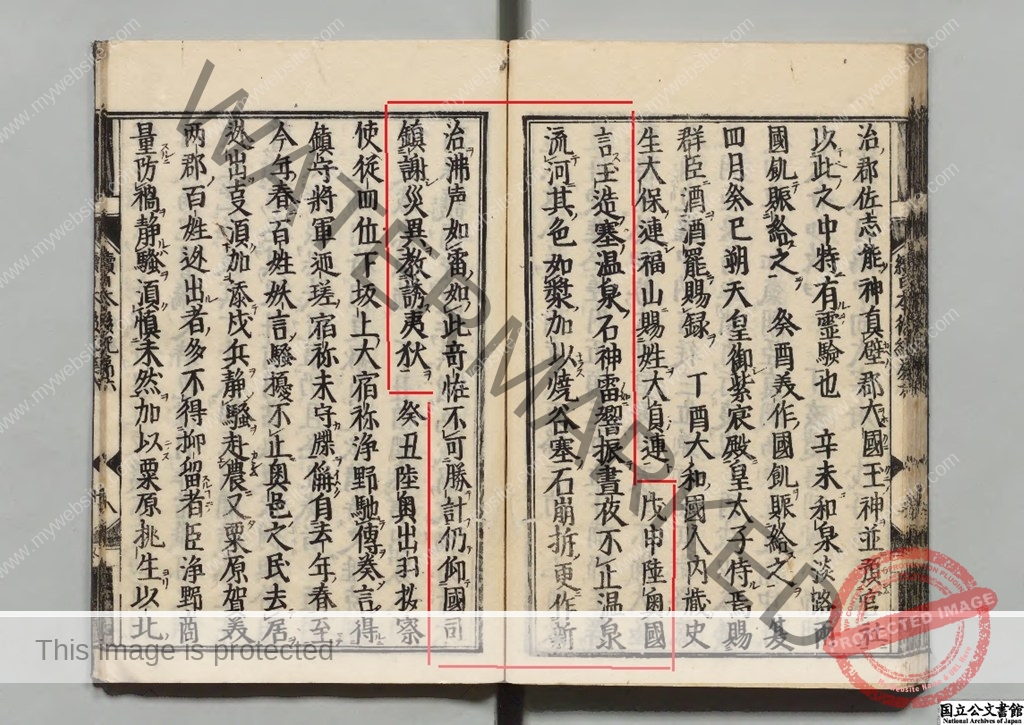 治郡佐志能神真壁郡大國玉神並預官社
以此之中特有霊驗也　辛未和泉淡路兩
國飢賑給之　癸酉美作國飢賑給之　夏
四月癸巳朔天皇御紫宸殿皇太子侍焉賜
群臣酒酒罷賜録　丁酉大和國人内蔵史
生大保連福山賜姓大貞連　戊申陸奥國
言玉造塞温泉石神雷響振晝夜不止温泉
流河其色如漿加以燒谷塞石崩折更作新
沼沸声如雷如此奇恠不可勝計仍仰國司
鎮謝災異教誘夷狄　癸丑陸奥出羽按察
使從四位下坂上大宿祢浄野馳傳奏言得
鎮守將軍匝瑳宿祢末守牒偁自去年春至
今年春百姓妖言騒擾不止奥邑之民去居
迯出支湏加添戍兵静騒赴農又栗原賀美
兩郡百姓迯出者多不得抑留者臣浄野商
量防禍静騒湏慎未然加以栗原桃生以北
WATERMARKED
www.mywebsite.com
This image is protected
PROTECTED IMAGE
国立公文書館
National Archives of Japan